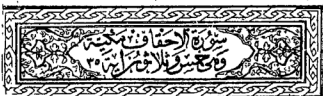 سورة الاحقاف مكية
وهى خمس وثلاثون اية ٣٥